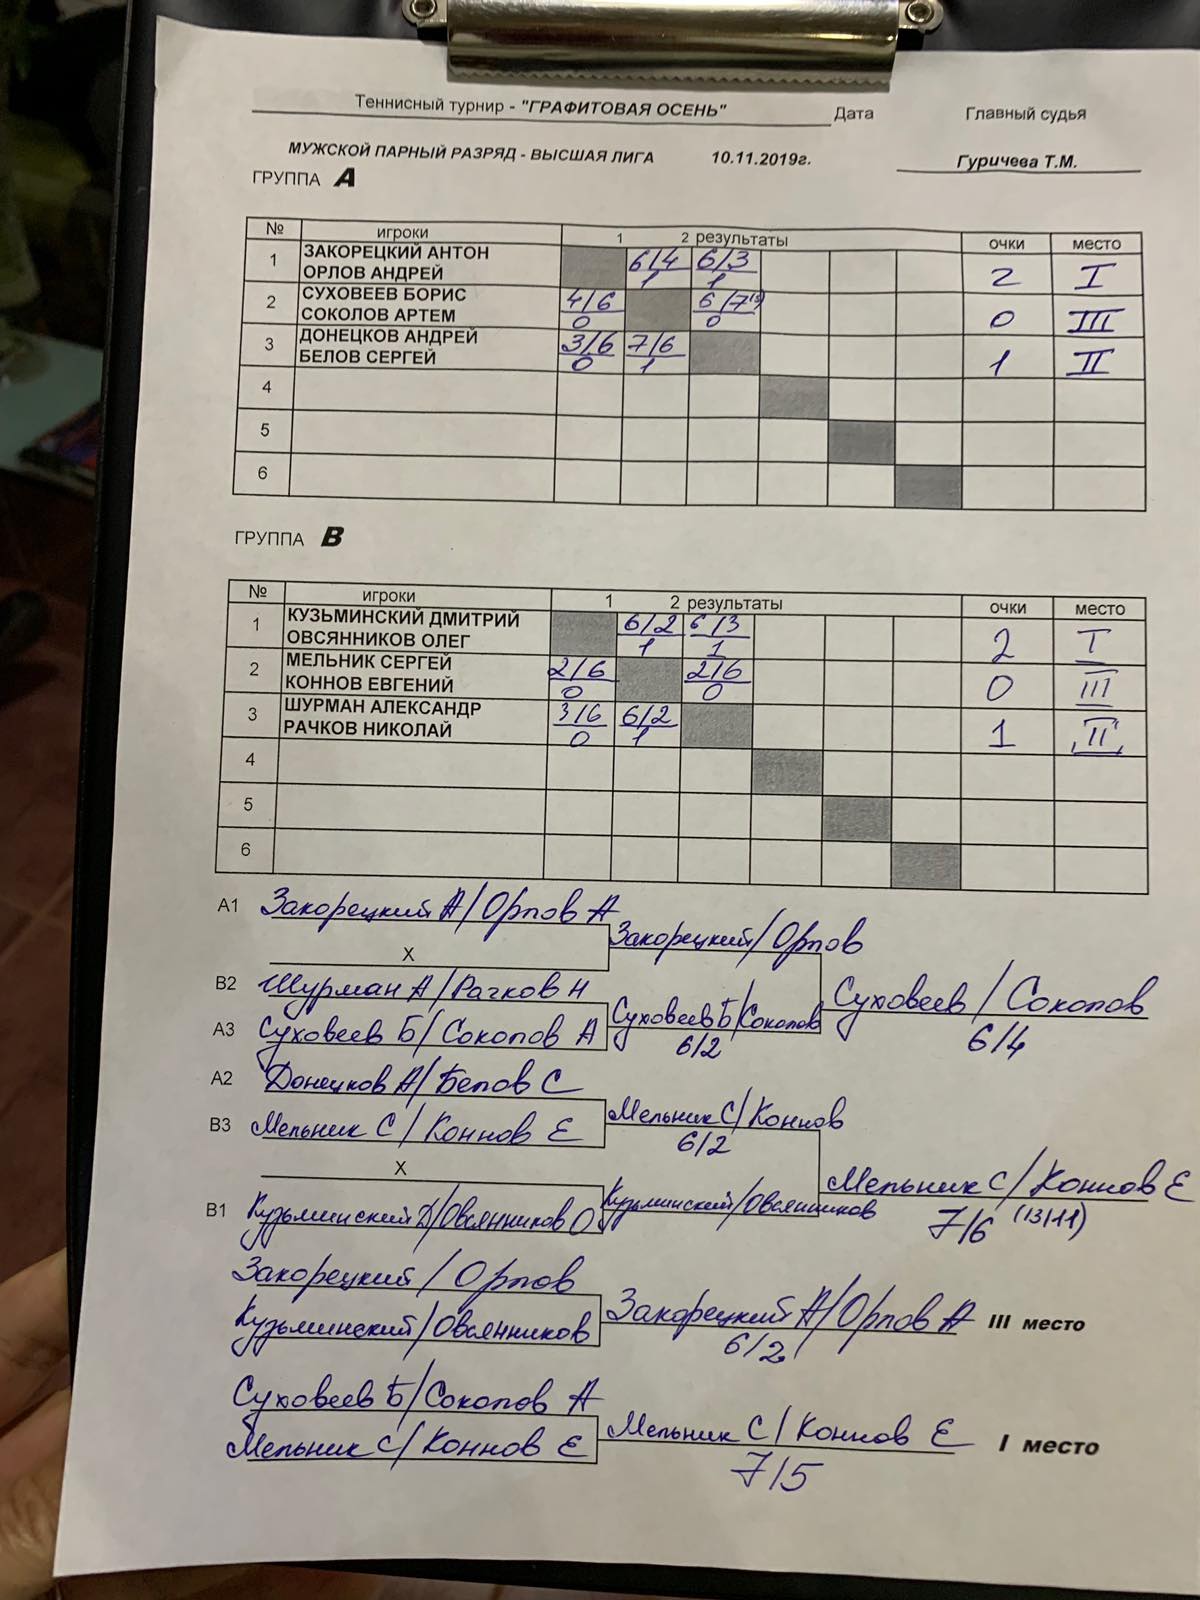 Теннисный турнир - "ГРАФИТОВАЯ ОСЕНЬ" Дата Главный судья
МУЖСКОЙ ПАРНЫЙ РАЗРЯД - ВЫСШАЯ ЛИГА 10.11.2019г. Гуричева Т.М.
ГРУППА А
№ игроки 1 2 результаты очки место
1 ЗАКОРЕЦКИЙ АНТОН 6/4 6/3 2 I
ОРЛОВ АНДРЕЙ 1 1
2 СУХОВЕЕВ БОРИС 4/6 6/7 0 III
СОКОЛОВ АРТЕМ 0 0
3 ДОНЕЦКОВ АНДРЕЙ 3/6 7/6 1 II
БЕЛОВ СЕРГЕЙ 0 1
4
5
6
ГРУППА В
№ игроки 1 2 результаты очки место
1 КУЗЬМИНСКИЙ ДМИТРИЙ 6/2 6/3 2 I
ОВСЯННИКОВ ОЛЕГ 1 1
2 МЕЛЬНИК СЕРГЕЙ 2/6 2/6 0 III
КОННОВ ЕВГЕНИЙ 0 0
3 ШУРМАН АЛЕКСАНДР 3/6 6/2 1 II
РАЧКОВ НИКОЛАЙ 0 1
4
5
6
А1 Закорецкий А/Орлов А
Закорецкий/Орлов
Х
В2 Шурман А/Рачков Н
Суховеев/Соколов
6/4
Суховеев Б/Соколов
6/2
А3 Суховеев Б/Соколов А
А2 Донецков А/Белов С
Мельник С/Коннов
6/2
В3 Мельник С/Коннов Е
Х
Мельник С/Коннов Е
7/6 (13/11)
В1 Кузьминский Д/Овсянников О Кузьминский/Овсянников
Закорецкий/Орлов
Закорецкий А/Орлов А III место
6/2
Кузьминский/Овсянников
Суховеев Б/Соколов А
Мельник С/Коннов Е I место
7/5
Мельник С/Коннов Е